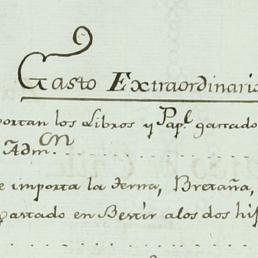 Gasto Extraordinario
portan los Libros y Pap.l gastado
Adm.on
e importa la
Bretaña,
gastado en Bestir alos dos hij